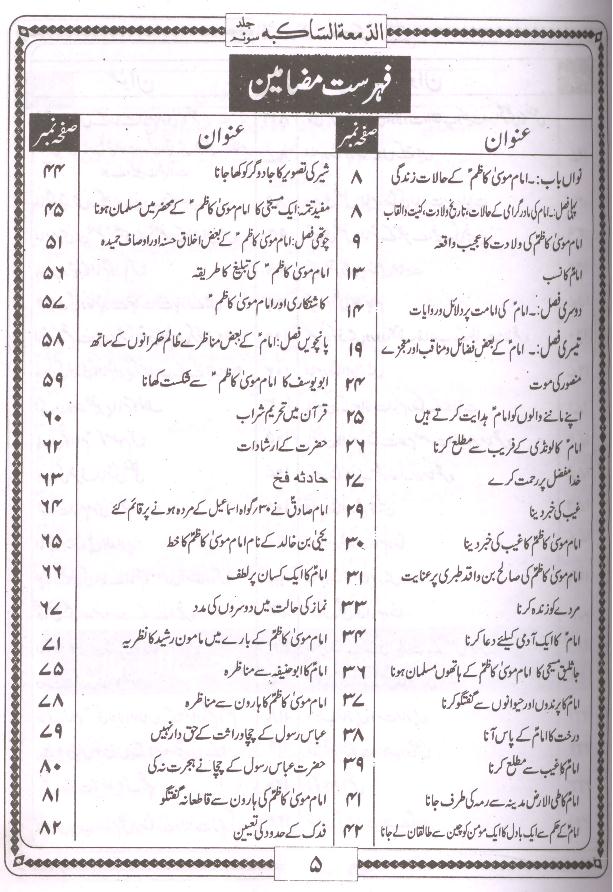 الدمعة الساکبہ جلد سوئم
فہرست مضامین
عنوان صفحہ نمبر
نواں باب:۔ امام موسیٰ کاظمؑ کے حالات زندگی ۸
پہلی فصل:۔ امام کی مادر گرامی کے حالات، تاریخ ولادت، کنیت والقاب ۸
امام موسیٰ کاظمؑ کی ولادت کا عجیب واقعہ ۹
امامؑ کا نسب ۱۳
دوسری فصل:۔ امامؑ کی امامت پر دلائل و روایات ۱۴
تیسری فصل:۔ امامؑ کے بعض فضائل و مناقب اور معجزے ۱۹
منصور کی موت ۲۴
اپنے ماننے والوں کو امامؑ ہدایت کرتے ہیں ۲۵
امامؑ کا لونڈی کے فریب سے مطلع کرنا ۲۶
خدا مفضل پر رحمت کرے ۲۷
غیب کی خبر دینا ۲۹
امام موسیٰ کاظمؑ کا غیب کی خبر دینا ۳۰
امام موسیٰ کاظمؑ کی صالح بن واقد طبری پر عنایت ۳۱
مردے کو زندہ کرنا ۳۳
امامؑ کا ایک آدمی کیلئے دعا کرنا ۳۴
جاثلیق مسیحی کا امام موسیٰ کاظمؑ کے ہاتھوں مسلمان ہونا ۳۶
امامؑ کا پرندوں اور حیوانوں سے گفتگو کرنا ۳۷
درخت کا امامؑ کے پاس آنا ۳۸
امامؑ کا غیب سے مطلع کرنا ۳۹
امامؑ کا طی الارض مدینہ سے رمہ کی طرف جانا ۴۱
امامؑ کے حکم سے ایک بادل کا ایک مؤمن کو چین سے طالقان لے جانا ۴۲
عنوان صفحہ نمبر
شیر کی تصویر کا جادوگر کو کھا جانا ۴۴
مفید تتمہ: ایک مسیحی کا امام موسیٰ کاظمؑ کے محضر میں مسلمان ہونا ۴۵
چوتھی فصل: امام موسیٰ کاظمؑ کے بعض اخلاق حسنہ اور اوصاف حمیدہ ۵۱
امام موسیٰ کاظمؑ کی تبلیغ کا طریقہ ۵۶
کاشتکاری اور امام موسیٰ کاظمؑ ۵۷
پانچویں فصل: امامؑ کے بعض مناظرے ظالم حکمرانوں کے ساتھ ۵۸
ابو یوسف کا امام موسیٰ کاظمؑ سے شکست کھانا ۵۹
قرآن میں تحریم شراب ۶۰
حضرت کے ارشادات ۶۲
حادثہ فخ ۶۳
امام صادقؑ نے ۳۰ گواہ اسماعیل کے مردہ ہونے پر قائم کئے ۶۴
یحییٰ بن خالد کے نام امام موسیٰ کاظمؑ کا خط ۶۵
امامؑ کا ایک کسان پر لطف ۶۶
نماز کی حالت میں دوسروں کی مدد ۶۷
امام موسیٰ کاظمؑ کے بارے میں مامون رشید کا نظریہ ۷۱
امامؑ کا ابو حنیفہ سے مناظرہ ۷۵
امام موسیٰ کاظمؑ کا ہارون سے مناظرہ ۷۸
عباس رسول کے چچا وراثت کے حق دار نہیں ۷۹
حضرت عباس رسول کے چچا نے ہجرت نہ کی ۸۰
امام موسیٰ کاظمؑ کی ہارون سے قاطعانہ گفتگو ۸۱
فدک کے حدود کی تعیین ۸۲
۵